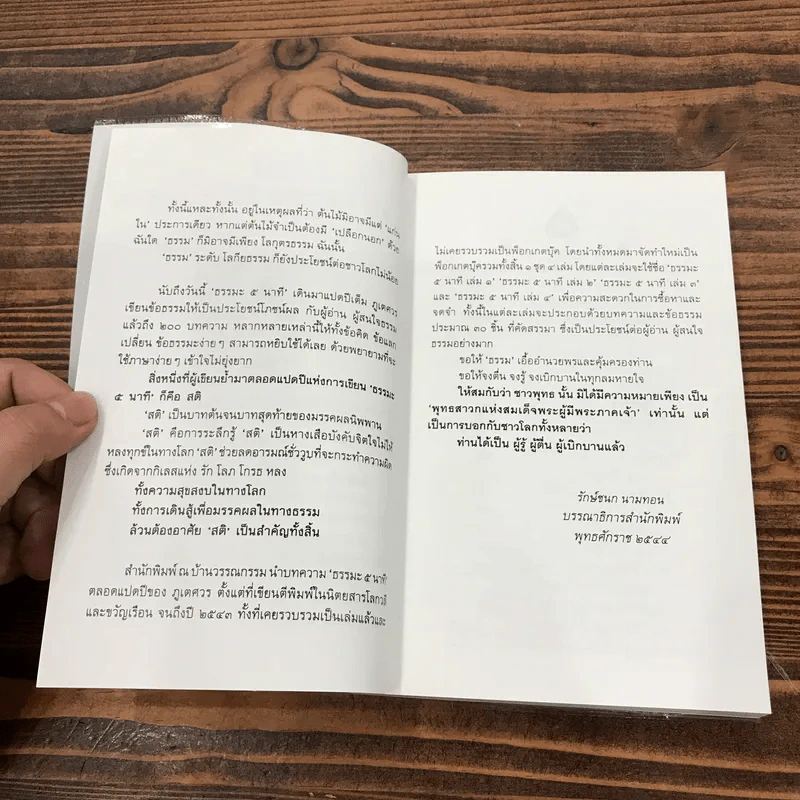 ทั้งนี้แหละทั้งนั้น อยู่ในเหตุผลที่ว่า ต้นไม้มิอาจมีแต่ 'แก่น
ใน' ประการเดียว หากแต่ต้นไม้จำเป็นต้องมี 'เปลือกนอก' ด้วย
ฉันใด 'ธรรม' ก็มิอาจมีเพียง โลกุตรธรรม ฉันนั้น
'ธรรม' ระดับ โลกียธรรม ก็ยังประโยชน์ต่อชาวโลกไม่น้อย
นับถึงวันนี้ 'ธรรมะ ๕ นาที' เดินมาแปดปีเต็ม ภูเตศวร
เขียนข้อธรรมให้เป็นประโยชน์โภชน์ผล กับผู้อ่าน ผู้สนใจธรรม
แล้วถึง ๒๐๐ บทความ หลากหลายเหล่านี้ให้ทั้งข้อคิด ข้อแลก
เปลี่ยน ข้อธรรมะง่ายๆ สามารถหยิบใช้ได้เลย ด้วยพยายามที่จะ
ใช้ภาษาง่ายๆ เข้าใจไม่ยุ่งยาก
สิ่งหนึ่งที่ผู้เขียนย้ำมาตลอดแปดปีแห่งการเขียน 'ธรรมะ
๕ นาที' ก็คือ สติ
'สติ' เป็นบาทต้นจนบาทสุดท้ายของมรรคผลนิพพาน
'สติ' คือการระลึกรู้ 'สติ' เป็นหางเสือบังคับจิตใจไม่ให้
หลงทุกข์ในทางโลก 'สติ' ช่วยลดอารมณ์ชั่ววูบที่จะกระทำความผิด
ซึ่งเกิดจากกิเลสแห่ง รัก โลภ โกรธ หลง
ทั้งความสุขสงบในทางโลก
ทั้งการเดินสู้เพื่อมรรคผลในทางธรรม
ล้วนต้องอาศัย 'สติ' เป็นสำคัญทั้งสิ้น
สำนักพิมพ์ ณ บ้านวรรณกรรม นำบทความ 'ธรรมะ ๕ นาที'
ตลอดแปดปีของ ภูเตศวร ตั้งแต่ที่เขียนตีพิมพ์ในนิตยสารโลกทิพย์
และขวัญเรือน จนถึงปี ๒๕๔๓ ทั้งที่เคยรวบรวมเป็นเล่มแล้วและ
ไม่เคยรวบรวมเป็นพ็อกเกตบุ๊ค โดยนำทั้งหมดมาจัดทำใหม่เป็น
พ็อกเกตบุ๊ครวมทั้งสิ้น ๑ ชุด ๔ เล่ม โดยแต่ละเล่มจะใช้ชื่อ 'ธรรมะ
๕ นาที เล่ม ๑' 'ธรรมะ ๕ นาที เล่ม ๒' 'ธรรมะ ๕ นาที เล่ม ๓'
และ 'ธรรมะ ๕ นาที เล่ม ๔' เพื่อความสะดวกในการซื้อหาและ
จดจำ ทั้งนี้ในแต่ละเล่มจะประกอบด้วยบทความและข้อธรรม
ประมาณ ๓๐ ชิ้น ที่คัดสรรมา ซึ่งเป็นประโยชน์ต่อผู้อ่าน ผู้สนใจ
ธรรมอย่างมาก
ขอให้ 'ธรรม' เอื้ออำนวยพรและคุ้มครองท่าน
ขอให้จงตื่น จงรู้ จงเบิกบานในทุกลมหายใจ
ให้สมกับว่า ชาวพุทธ นั้น มิได้มีความหมายเพียง เป็น
'พุทธสาวกแห่งสมเด็จพระผู้มีพระภาคเจ้า' เท่านั้น แต่
เป็นการบอกกับชาวโลกทั้งหลายว่า
ท่านได้เป็น ผู้รู้ ผู้ตื่น ผู้เบิกบานแล้ว
รักษ์ชนก นามทอน
บรรณาธิการสำนักพิมพ์
พุทธศักราช ๒๕๔๔